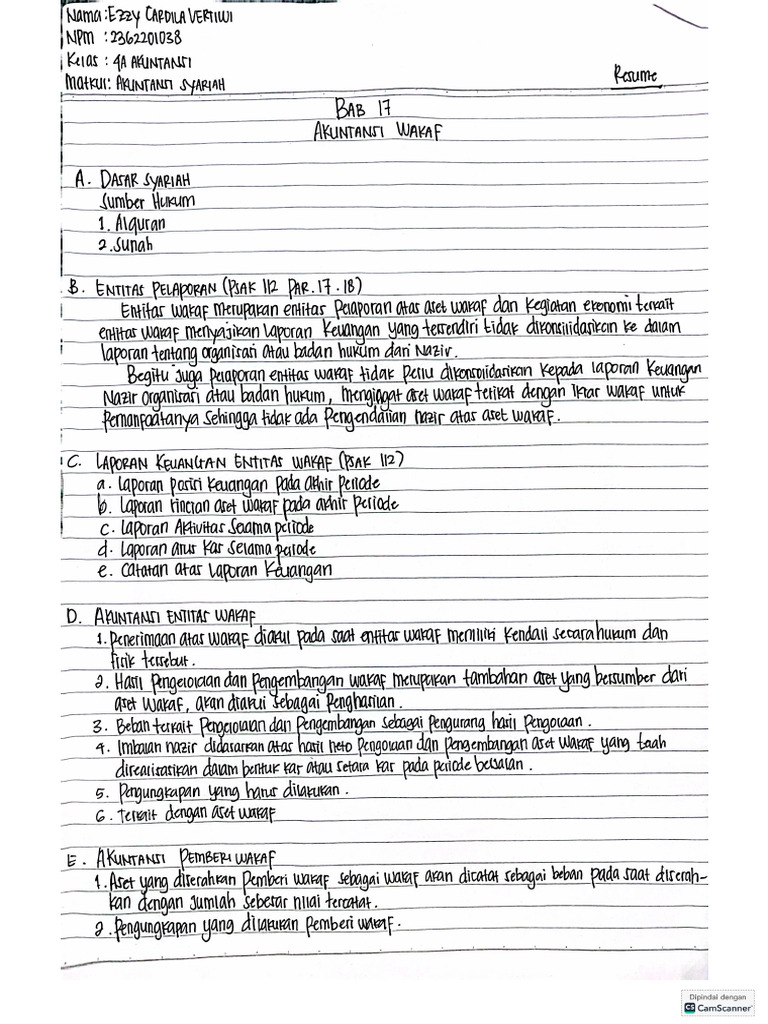 Nama : Ezzy CARDILA VERTIWI
NPM : 2362201038
Kelas : 4A AKUNTANSI
Matkul : AKUNTANSI SYARIAH
Resume
BAB 17
AKUNTANSI WAKAF
A. DASAR SYARIAH
Sumber Hukum
1. Alquran
2. Sunah
B. ENTITAS PELAPORAN (PSAK 112 PAR. 17 . 18)
Entitas wakaf merupakan entitas pelaporan atas aset wakaf dan kegiatan ekonomi terkait
entitas wakaf menyajikan laporan keuangan yang tersendiri tidak dikonsilidasikan ke dalam
laporan tentang organisasi atau badan hukum dari Nazir.
Begitu juga pelaporan entitas wakaf tidak perlu dikonsolidasikan kepada laporan keuangan
Nazir organisasi atau badan hukum, mengingat aset wakaf terikat dengan Ikrar wakaf untuk
pemanfaatanya sehingga tidak ada pengendalian nazir atas aset wakaf.
C. LAPORAN KEUANGAN ENTITAS WAKAF (PSAK 112)
a. Laporan posisi keuangan pada akhir periode
b. Laporan rincian aset wakaf pada akhir periode
c. Laporan Aktivitas selama periode
d. Laporan arus kas selama periode
e. Catatan atas laporan keuangan
D. AKUNTANSI ENTITAS WAKAF
1. Penerimaan atas wakaf diakui pada saat entitas wakaf memiliki kendali secara hukum dan
fisik tersebut.
2. Hasil pengelolaan dan pengembangan wakaf merupakan tambahan aset yang bersumber dari
aset wakaf, akan diakui sebagai penghasilan.
3. Beban terkait pengelolaan dan pengembangan sebagai pengurang hasil pengolaan.
4. Imbalan nazir didasarkan atas hasil neto pengolaan dan pengembangan aset wakaf yang
direalisasikan dalam bentuk kas atau setara kas pada periode berjalan.
5. Pengungkapan yang harus dilakukan.
6. Terkait dengan aset wakaf
E. AKUNTANSI PEMBERI WAKAF
1. Aset yang diserahkan pemberi wakaf sebagai wakaf akan dicatat sebagai beban pada saat diserah-
kan dengan jumlah sebesar nilai tercatat.
2. Pengungkapan yang dilakukan pemberi wakaf.
Dipindai dengan
CS CamScanner